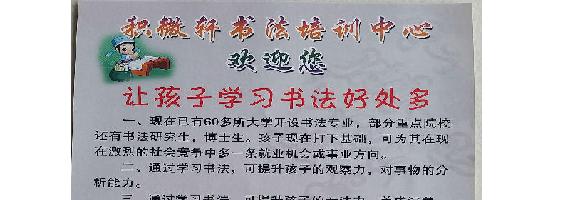 积微轩书法培训中心
欢迎您
让孩子学习书法好处多
一、现在已有60多所大学开设书法专业，部分重点院校
还有书法研究生，博士生。孩子现在打下基础，可为其在现
在激烈的社会竞争中多一条就业机会或事业方向。
二、通过学习书法，可提升孩子的观察力，对事物的分
析能力。
三、通过学习书法，可提升孩子的